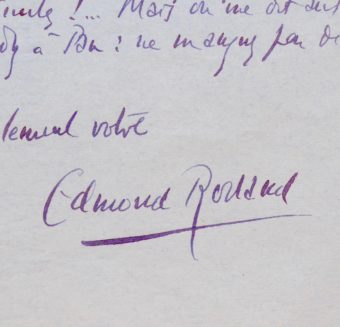 ! ... Mais on me dit
à Pau : ne manquez pas de
votre
Edmond Rostand